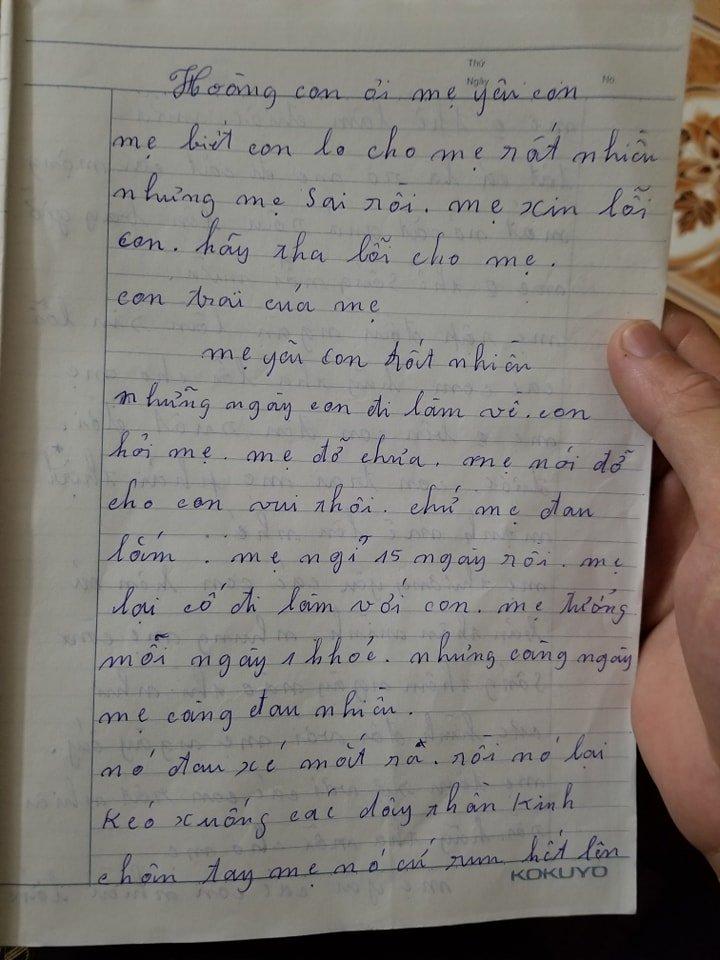 Thứ
Ngày
No.
Hoàng con ơi mẹ yêu con
mẹ biết con lo cho mẹ rất nhiều
nhưng mẹ sai rồi. mẹ xin lỗi
con. hãy tha lỗi cho mẹ.
con trai của mẹ
mẹ yêu con rất nhiều
những ngày con đi làm về. con
hỏi mẹ. mẹ đỡ chưa. mẹ nói đỡ
cho con vui thôi. chứ mẹ đau
lắm. mẹ nghỉ 15 ngày rồi. mẹ
lại cố đi làm với con. mẹ tưởng
mỗi ngày 1 khác. nhưng càng ngày
mẹ càng đau nhiều.
nó đau xé mắt ra. rồi nó lại
kéo xuống các dây thần kinh
chân tay mẹ nó cứ run hết lên
KOKUYO